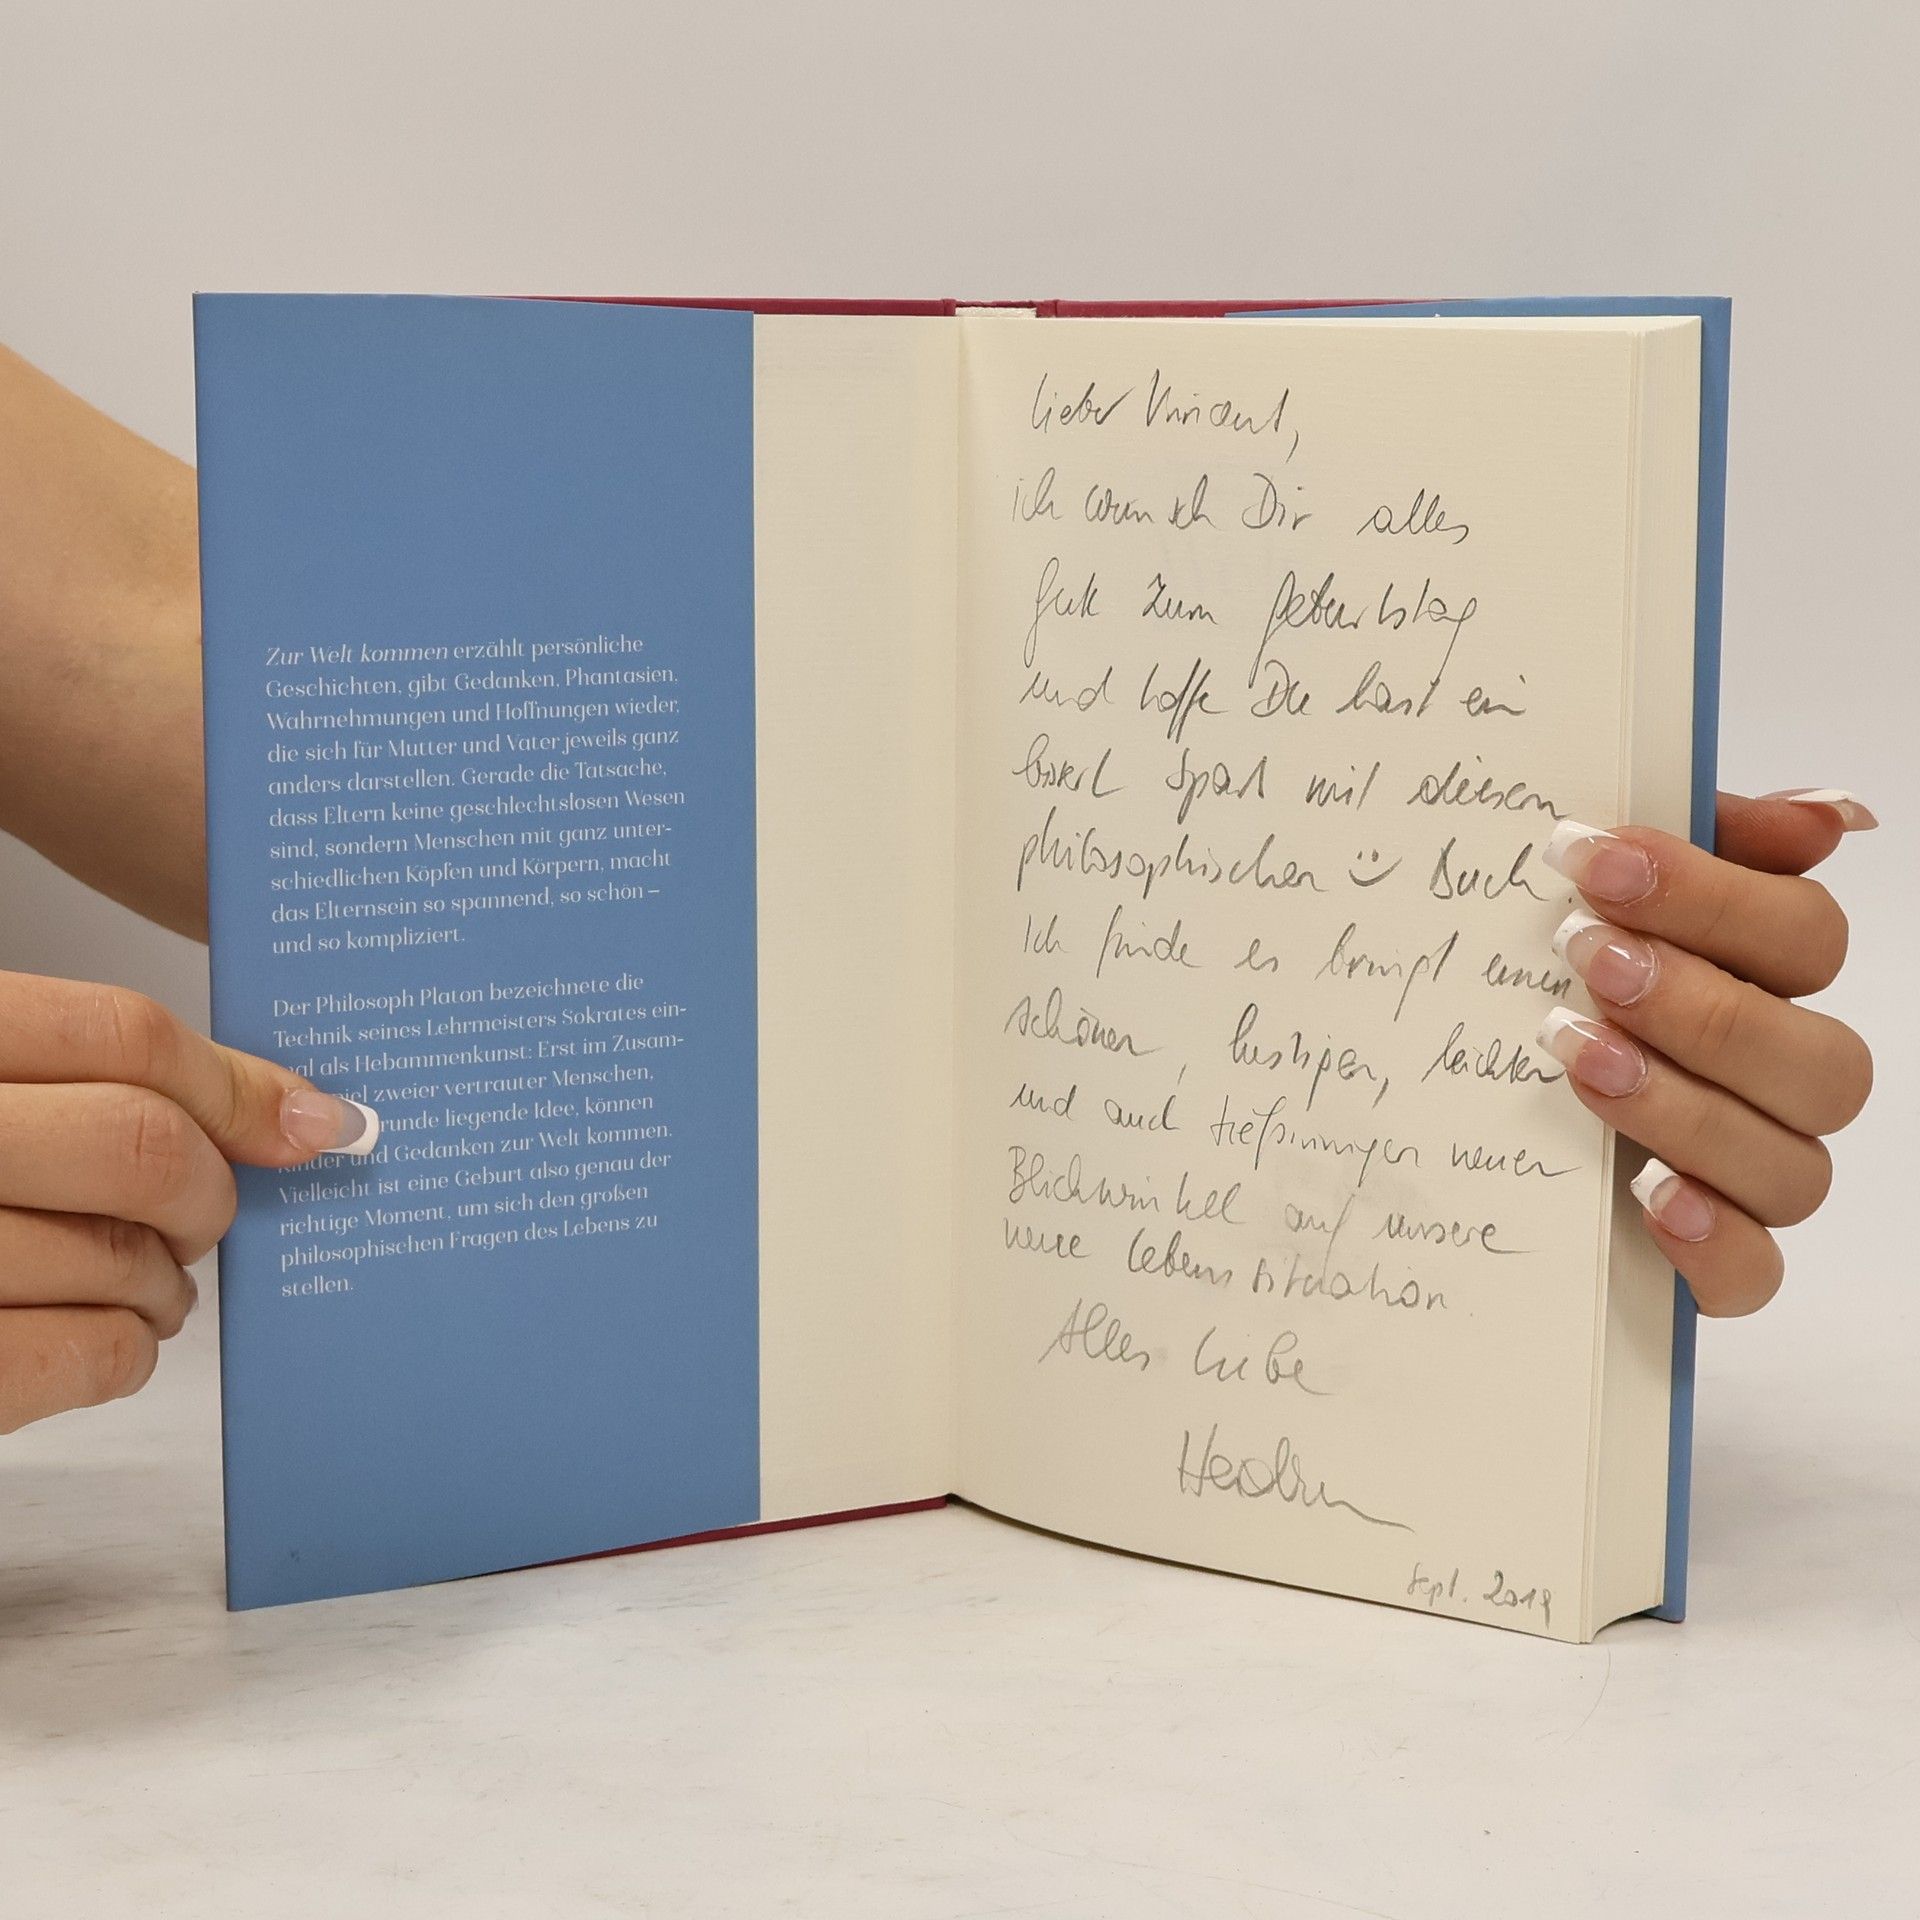 Zur Welt kommen erzählt persönliche
Geschichten, gibt Gedanken, Phantasien,
Wahrnehmungen und Hoffnungen wieder,
die sich für Mutter und Vater jeweils ganz
anders darstellen. Gerade die Tatsache,
dass Eltern keine geschlechtslosen Wesen
sind, sondern Menschen mit ganz unter-
schiedlichen Köpfen und Körpern, macht
das Elternsein so spannend, so schön –
und so kompliziert.
Der Philosoph Platon bezeichnete die
Technik seines Lehrmeisters Sokrates ein-
al als Hebammenkunst: Erst im Zusam-
iel zweier vertrauter Menschen,
runde liegende Idee, können
Kinder und Gedanken zur Welt kommen.
Vielleicht ist eine Geburt also genau der
richtige Moment, um sich den großen
philosophischen Fragen des Lebens zu
stellen.
Lieber Vincent,
ich wünsch Dir alles
Gute zum Geburtstag
und hoffe Du hast ein
bisserl Spaß mit diesem
philosophischen Buch.
Ich finde es bringt einen
schönen, lustigen, leichten
und auch tiefsinnigen neuen
Blickwinkel auf unsere
neue Lebenssituation.
Alles Liebe
Sept. 2019